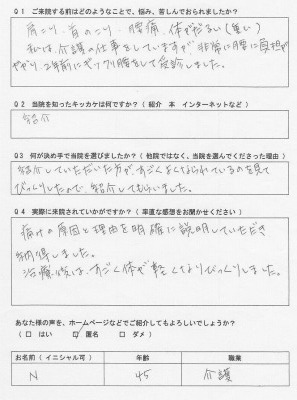 Q1 ご来院する前はどのようなことで、悩み、苦しんでおられましたか?
肩こり、首のこり、腰痛、体がだるい(重い)
私は、介護の仕事をしていますが、非常に腰に負担が
かかり、2年前にギックリ腰をして受診しました。
Q2 当院を知ったキッカケは何ですか?(紹介 本 インターネットなど)
紹介
Q3 何が決め手で当院を選びましたか?(他院ではなく、当院を選んでくださった理由)
紹介していただいた方が、すごくよくなられているのを見て
びっくりしたので、紹介してもらいました。
Q4 実際に来院されていかがですか?(率直な感想をお聞かせください)
痛みの原因と理由を明確に説明していただき
納得しました。
治療後は、すごく体が軽くなりびっくりしました。
あなた様の声を、ホームページなどでご紹介してもよろしいでしょうか?
(□)はい (☑)匿名 (□)ダメ)
お名前(イニシャル可) 年齢 職業
N 45 介護